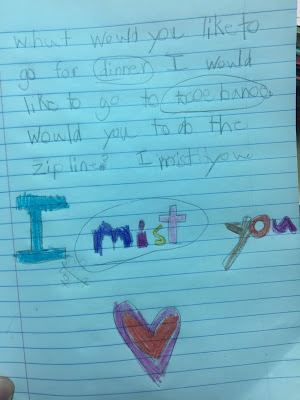 what would you like to
go for dinner I would
like to go to
would you to do the
zip line? I mist you
I mist you